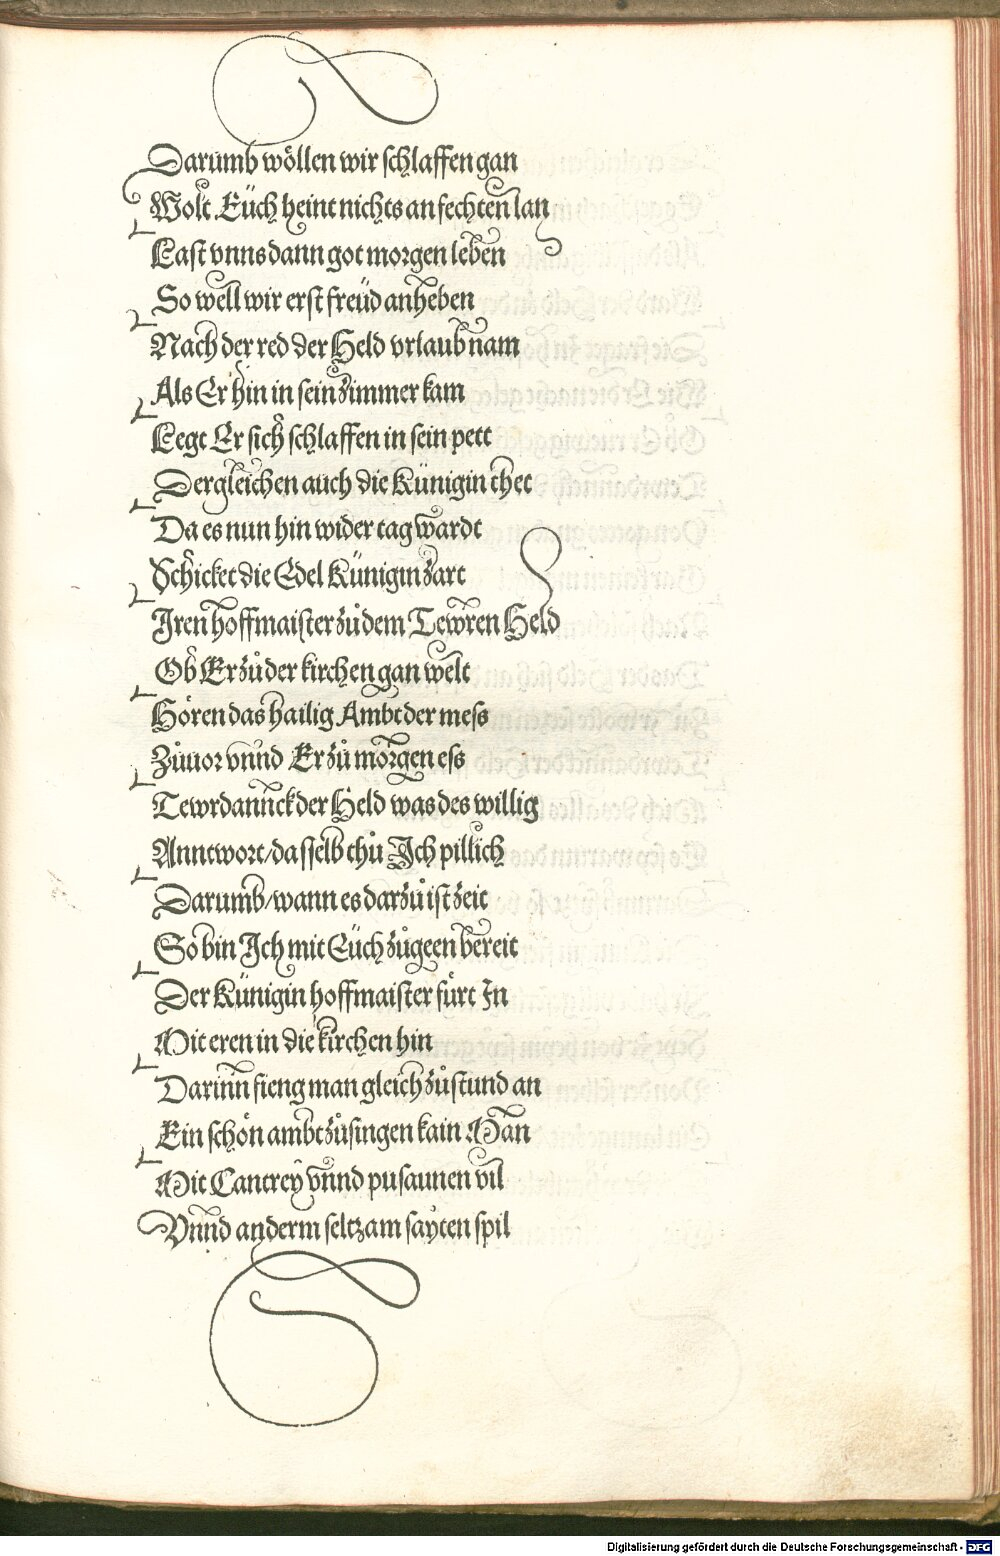 Darumb wöllen wir schlaffen gan
Wolt Euch heint nichts anfechten lan
Last vnns dann got morgen leben
So well wir erst freüd anheben
Nach der red der Held vrlaub nam
Als Er hin in sein zimmer kam
Legt Er sich schlaffen in sein pett
Dergleichen auch die Künigin thet
Da es nun hin wider tag wardt
Schicket die Edel Künigin zart
Iren hoffmaister zů dem Tewren Held
Ob Er zů der kirchen gan welt
Hören das hailig Ambt der mess
Zůuor vnnd Er zů morgen ess
Tewrdannck der Held was des willig
Anntwort/dasselb thů Ich pillich
Darumb/wann es darzů ist zeit
So bin Ich mit Eüch zůgeen bereit
Der Künigin hoffmaister fůrt In
Mit eren in die kirchen hin
Darinn fieng man gleich zů stund an
Ein schön ambt zů singen kain Man
Mit Cantrey vnnd pusaunen vil
Vnnd anderm seltzam sayten spil
Digitalisierung gefördert durch die Deutsche Forschungsgemeinschaft - DFG